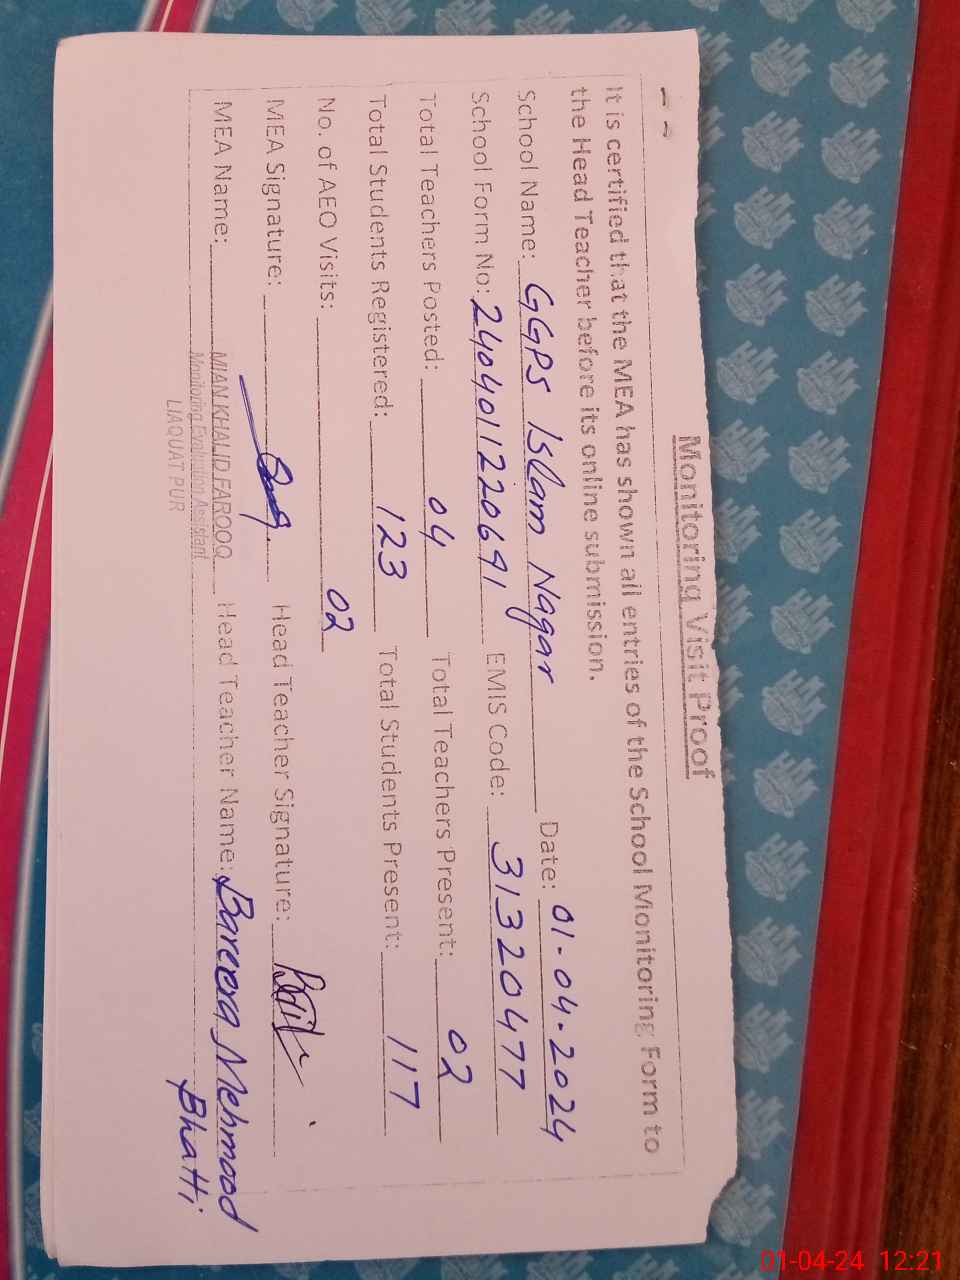 Monitoring Visit Proof
It is certified that the MEA has shown all entries of the School Monitoring Form to
the Head Teacher before its online submission.
School Name: GGPS Islam Nagar Date: 01-04-2024
School Form No: 2404011220691 EMIS Code: 31320477
Total Teachers Posted: 04 Total Teachers Present: 02
Total Students Registered: 123 Total Students Present: 117
No. of AEO Visits: 02
MEA Signature: Head Teacher Signature:
MEA Name: MIAN KHALID FAROOQ Head Teacher Name: Bareera Mehmood
Monitoring Evaluation Assistant
LIAQUAT PUR
Bhatti
01-04-24 12:21